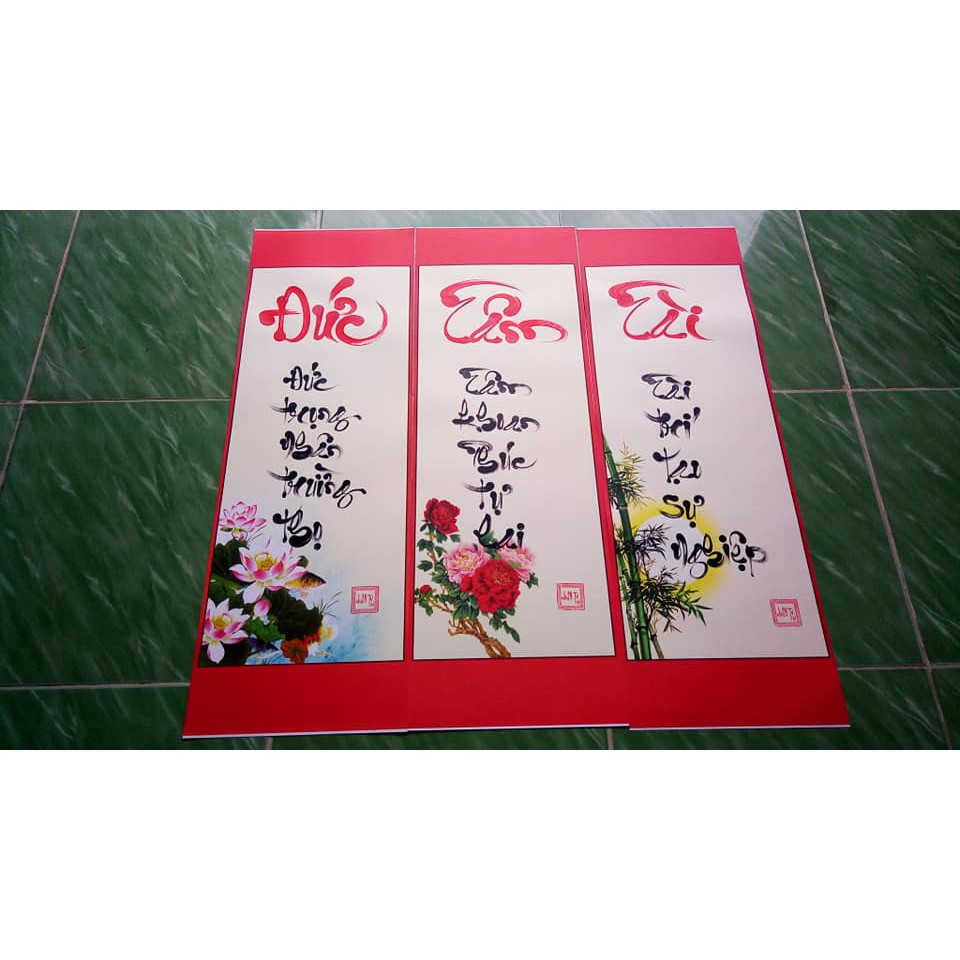 Đức
Đức
trọng
nhân
trường
thọ
Tâm
Tâm
khoan
phúc
tự
lai
Tài
Tài
trí
tạo
sự
nghiệp